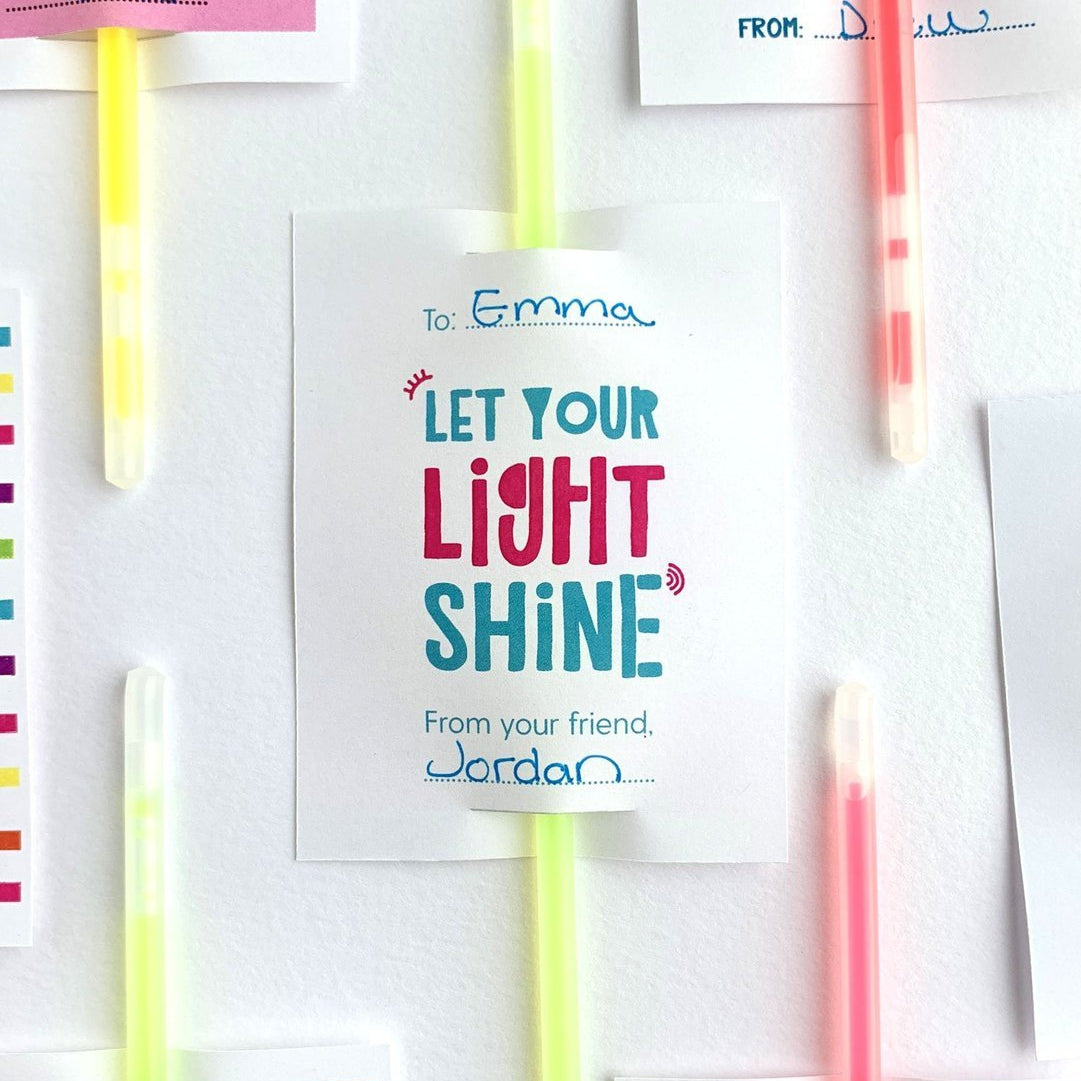 FROM: Drew
To: Emma
LET YOUR
LiGHT
SHiNE
From your friend,
Jordan